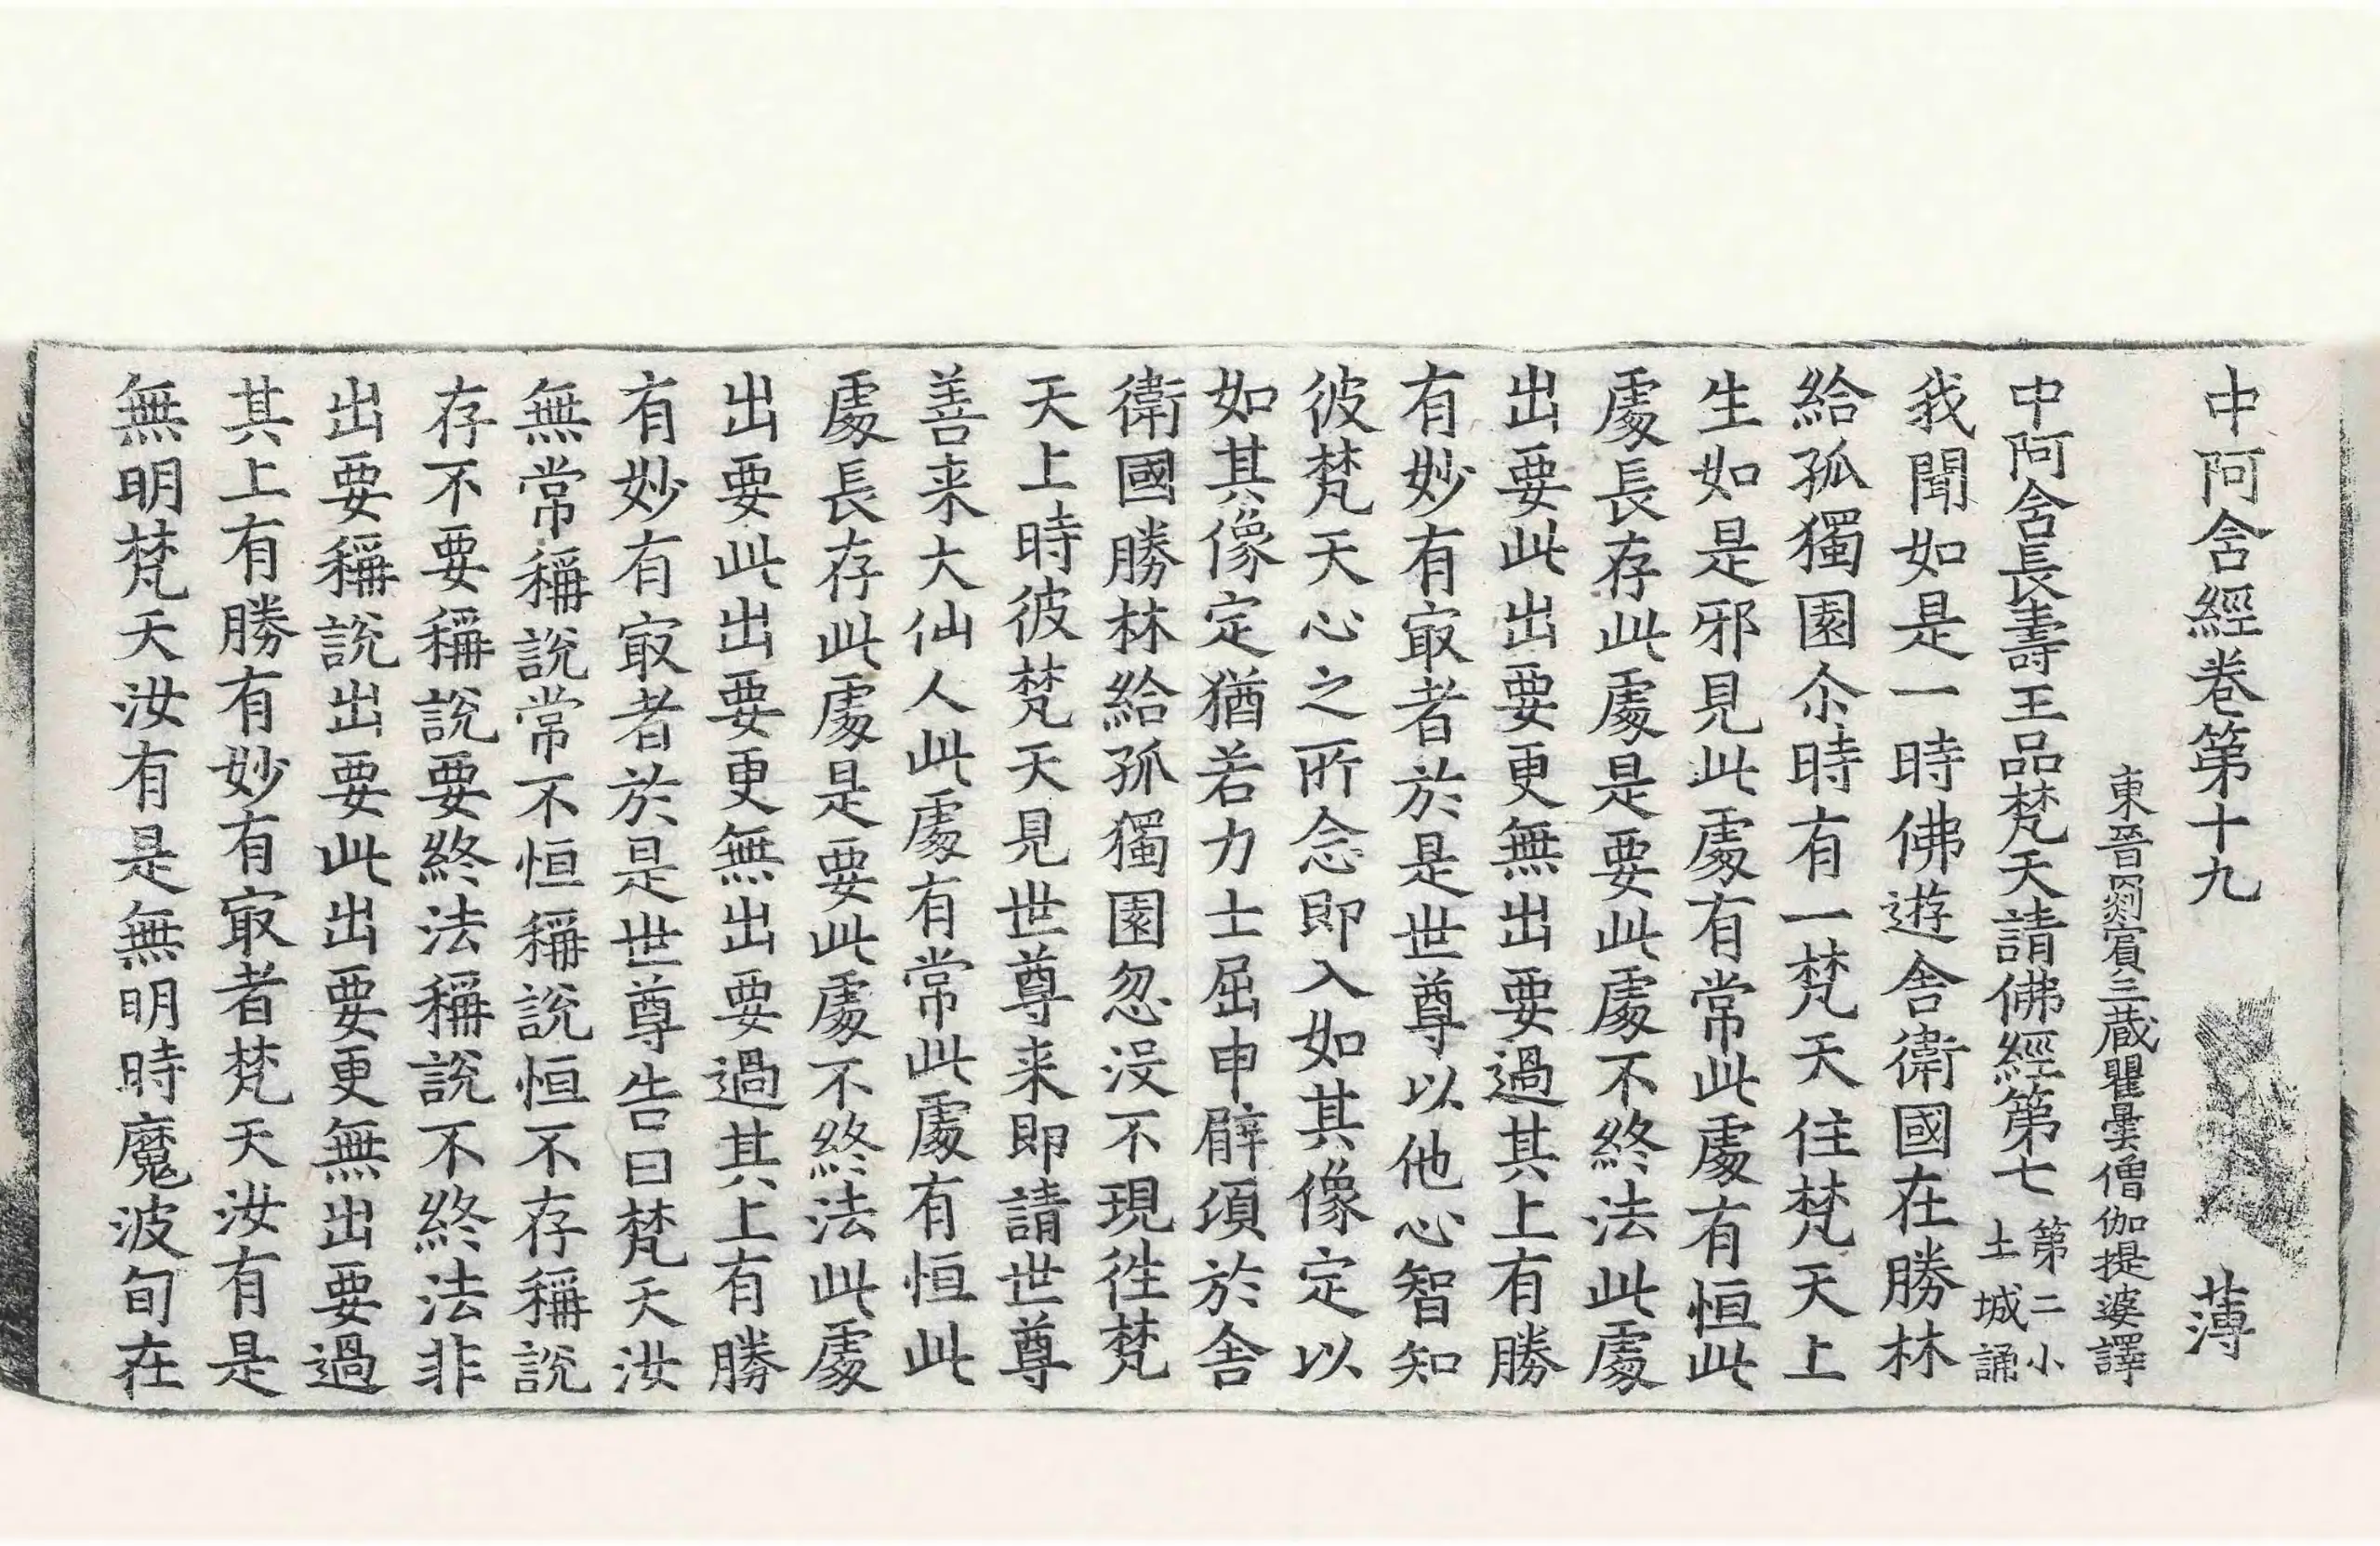 中阿含經卷第十九 薄
東晉罽賓三藏瞿曇僧伽提婆譯
中阿含長壽王品梵天請佛經第七 第二小土城誦
我聞如是一時佛遊舍衛國在勝林
給孤獨園尒時有一梵天住梵天上
生如是邪見此處有常此處有恒此
處長存此處是要此處不終法此處
出要此出要更無出要過其上有勝
有妙有㝡者於是世尊以他心智知
彼梵天心之所念即入如其像定以
如其像定猶若力士屈申臂頃於舍
衛國勝林給孤獨園忽沒不現徃梵
天上時彼梵天見世尊来即請世尊
善来大仙人此處有常此處有恒此
處長存此處是要此處不終法此處
出要此出要更無出要過其上有勝
有妙有㝡者於是世尊告曰梵天汝
無常稱說常不恒稱說恒不存稱說
存不要稱說要終法稱說不終法非
出要稱說出要此出要更無出要過
其上有勝有妙有㝡者梵天汝有是
無明梵天汝有是無明時魔波旬在